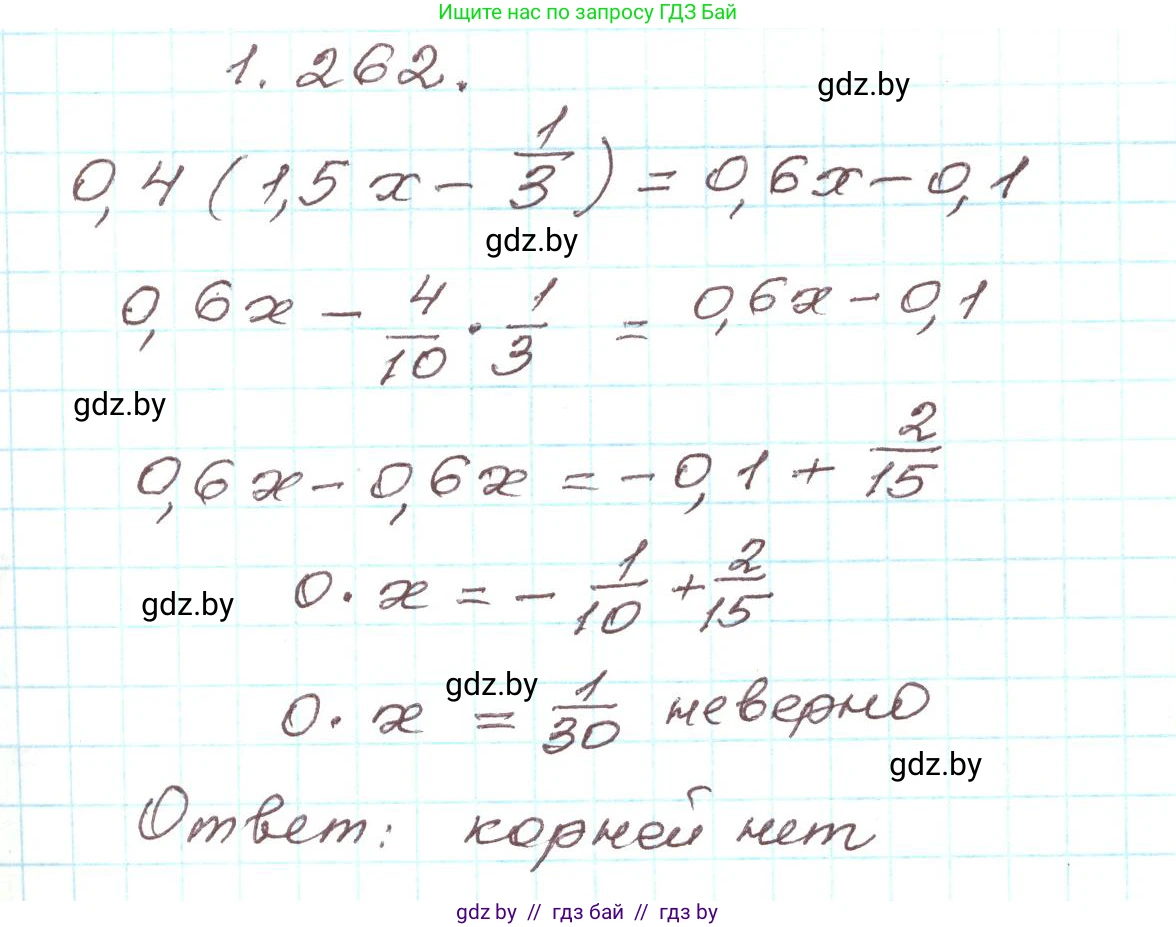 Ищите нас по запросу ГДЗ Бай
1. 262.
gdz.by
0,4 (1,5x - 1/3) = 0,6x - 0,1
gdz.by
0,6x - 4/10 · 1/3 = 0,6x - 0,1
gdz.by
0,6x - 0,6x = -0,1 + 2/15
gdz.by
0 · x = - 1/10 + 2/15
gdz.by
0 · x = 1/30 неверно
gdz.by
Ответ: корней нет
gdz.by // гдз бай // гдз by